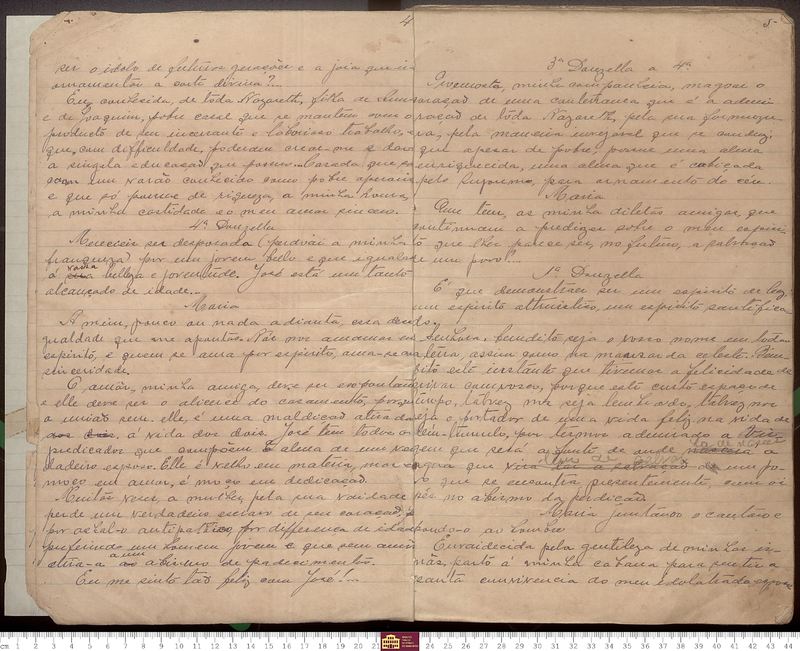 4
ser o idolo de futuras gerações e a joia que ir
ornamentar a corte divina?...
Eu, conhecida, de toda Nazareth, filha de Anna
e de Joaquim, pobre casal que se mantem com o
producto de seu incessante e laborioso trabalho, e
que, com difficuldade, poderam crear-me e dar
a singela educação que possuo... Casada
com um varão conhecido como pobre operario
e que só possue de riqueza, a minha honra,
a minha castidade e o meu amor sincero.
4ª Donzella
Mereceis ser desposada (perdoai a minha
franqueza) por um jovem bello e que iguale
á vossa belleza e joventude. José está um tanto
alcançado de idade...
Maria
A mim, pouco ou nada adianta, essa
gualdade que me apontas. Nós nos amamos em
espirito, e quem se ama por espirito, ama-se
sinceridade.
O amôr, minha amiga, deve ser expontaneo
e elle deve ser o alicerce do casamento, porque
a união sem elle, é uma maldicão atirada
á vida dos dois. José tem todos os
predicados que compõem a alma de um
dadeiro esposo. Elle é velho em materia, mas
moço em amor, é moço em dedicação.
Muitas vezes, a mulher, pela sua vaidade
perde um verdadeiro escravo de seu coração,
por achal-o antipatico, por differença de idade
preferindo um homem jovem e que sem amôr
atira-a a um abismo de padecimentos.
Eu me sinto tão feliz com José!...
5
3ª Donzella a 4ª
minha companheira, magoar o
coração de uma conterranea que é a admi
ração de toda Nazareth, pela sua formosu
ra, pela maneira invejavel que se conduz
que apesar de pobre, possue uma alma
enriquecida, uma alma que é cobiçada
pelo Supremo, para ornamento do céu.
Maria
Que tem, as minha diletas amigas, que
continuam a predizer sobre o meu espiri
to que lhes parece ser, no futuro, a salvação
de um povo?...
1ª Donzella
É que demonstras ser um espirito de luz,
um espirito altruistico, um espirito santifica
do.
Senhora, bendito seja o vosso nome em toda
a terra, assim como na mansarda celeste. Ben
dito este instante que tivemos a felicidade de
estar comvosco, porque este curto espaço de
tempo, talvez, nos seja lembrado, talvez nos
seja o portador de uma vida feliz na vida de
alem-tumulo, por termos adeantado a
quem que será a fonte de onde a
agua que de um po
vo que se encontra presentemente, com os
pés no abismo da perdição.
Maria juntando o cantaro e
pondo-o ao hombro
Envaidecida pela gentileza de minhas ir
mãs, parto á minha cabana para sentir a
santa convivencia do meu idolatrado esposo